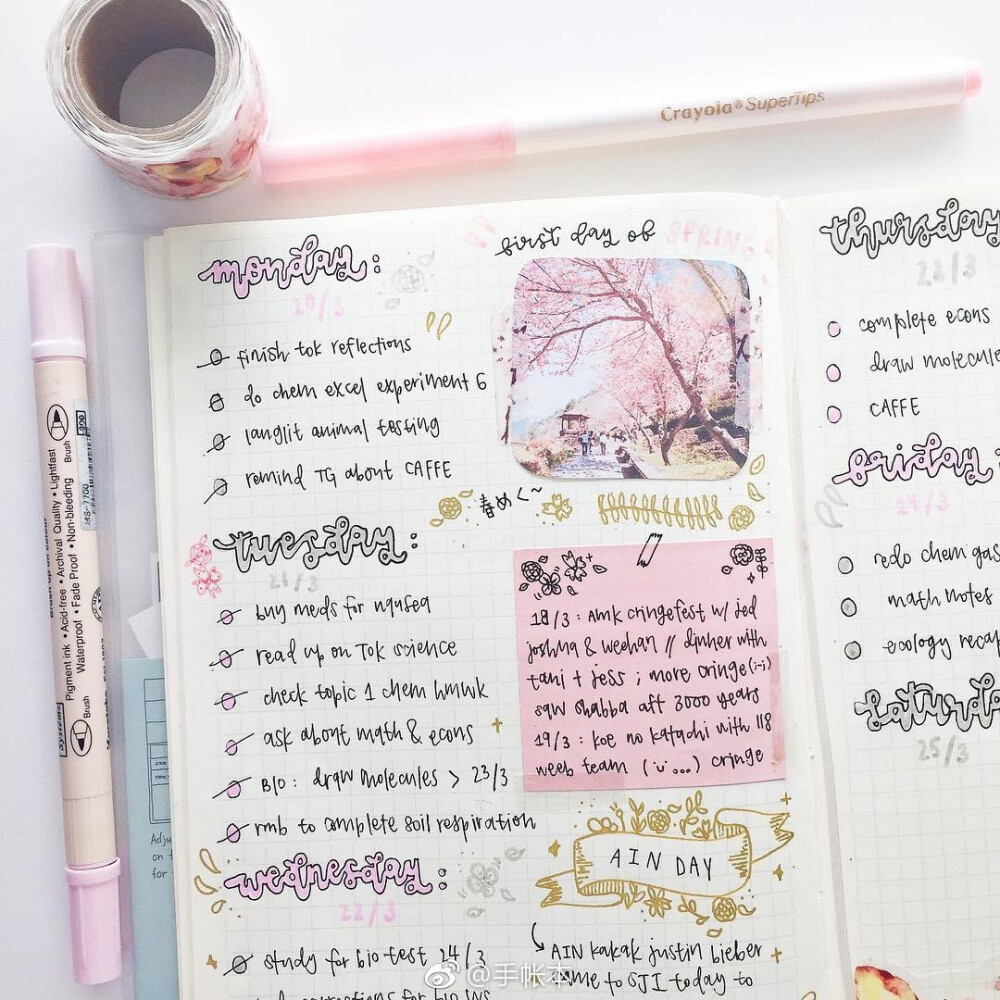 Crayola® SuperTips
monday:
20/3
finish tok reflections
do chem excel experiment 6
langlit animal testing
remind TG about CAFFE
first day of SPRING
春めく~
tuesday:
21/3
buy meds for nausea
read up on Tok science
check topic 1 chem hmwk
ask about math & econs
BIO: draw molecules > 23/3
rmb to complete soil respiration
18/3: AMK cringefest w/ jed
joshua & weehan // dinner with
tani + jess ; more cringe (;-;)
saw shabba aft 3000 years
19/3: koe no katachi with 118
weeb team (˙u˙...) cringe
wednesday:
22/3
study for bio test 24/3
AIN DAY
AIN kakak justin bieber
came to SJI today to
thursday
23/3
complete econs
draw molecule
CAFFE
friday
24/3
redo chem gas
math notes
ecology recap
saturda
25/3
Pigment ink • Acid-free • Archival Quality • Lightfast
Waterproof • Fade Proof • Non-bleeding
Brush
Brush
System
MS-7700
Adju
on t
for
@手帐本